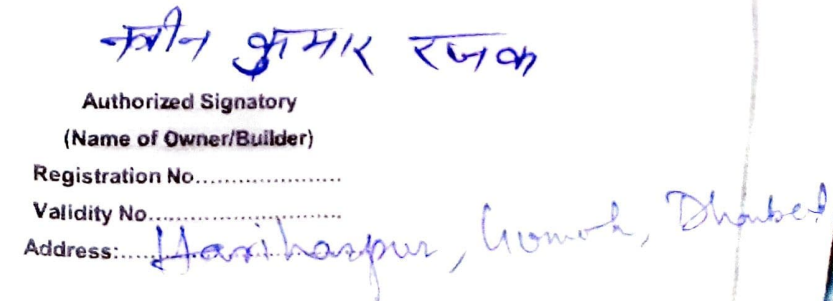 नवीन कुमार रजक
Authorized Signatory
(Name of Owner/Builder)
Registration No......................
Validity No..............................
Address:..... Hariharpur, Gomoh, Dhanbad